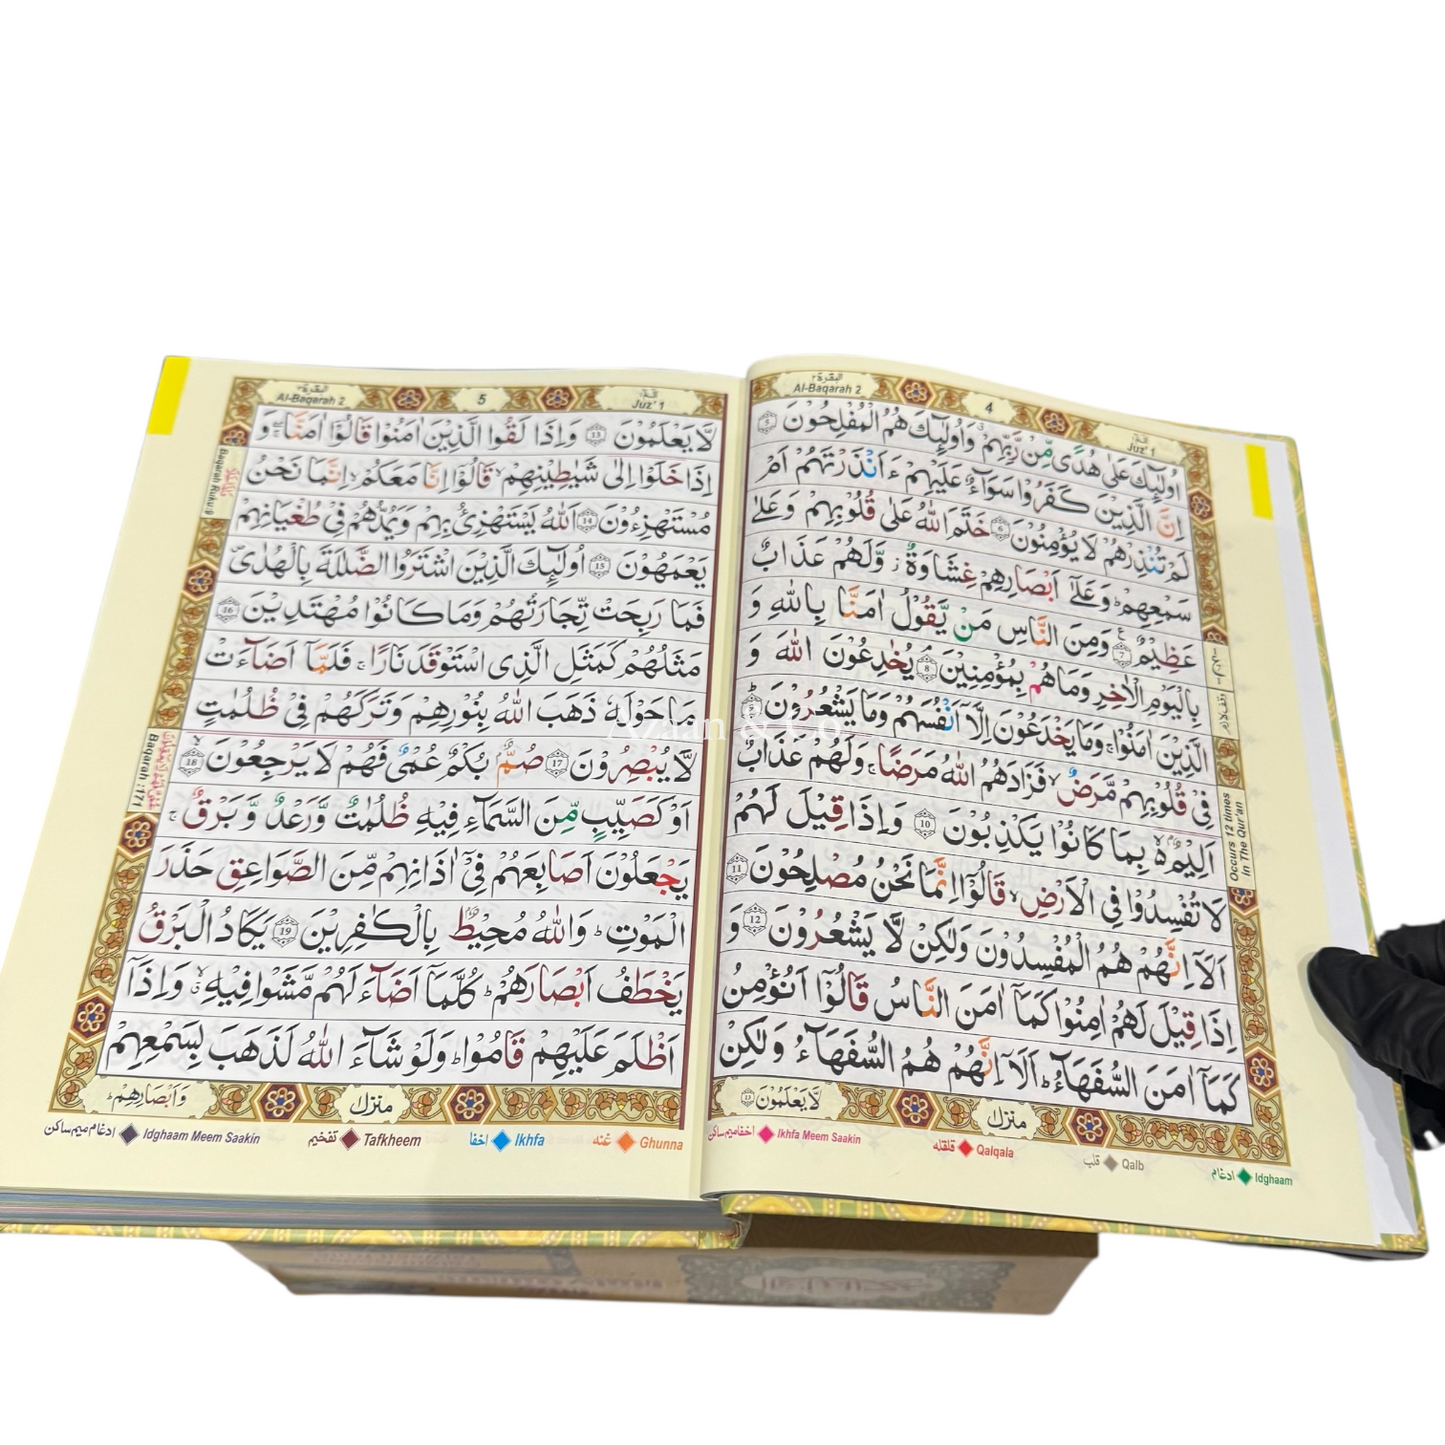 البقرة ٢
Al-Baqarah 2
4
Juz' 1
اُولٰٓئِكَ عَلٰى هُدًى مِّنْ رَّبِّهِمْ ۙ وَاُولٰٓئِكَ هُمُ الْمُفْلِحُوْنَ 5
اِنَّ الَّذِيْنَ كَفَرُوْا سَوَآءٌ عَلَيْهِمْ ءَاَنْذَرْتَهُمْ اَمْ
لَمْ تُنْذِرْهُمْ لَا يُؤْمِنُوْنَ 6 خَتَمَ اللّٰهُ عَلٰى قُلُوْبِهِمْ وَعَلٰى
سَمْعِهِمْ ؕ وَعَلٰٓى اَبْصَارِهِمْ غِشَاوَةٌ ؗ وَّلَهُمْ عَذَابٌ
عَظِيْمٌ 7 وَمِنَ النَّاسِ مَنْ يَّقُوْلُ اٰمَنَّا بِاللّٰهِ وَ
بِالْيَوْمِ الْاٰخِرِ وَمَا هُمْ بِمُؤْمِنِيْنَ 8 يُخٰدِعُوْنَ اللّٰهَ وَ
الَّذِيْنَ اٰمَنُوْا ۚ وَمَا يَخْدَعُوْنَ اِلَّآ اَنْفُسَهُمْ وَمَا يَشْعُرُوْنَ 9
فِيْ قُلُوْبِهِمْ مَّرَضٌ ۙ فَزَادَهُمُ اللّٰهُ مَرَضًا ۚ وَلَهُمْ عَذَابٌ
اَلِيْمٌ ۢ ۙ بِمَا كَانُوْا يَكْذِبُوْنَ 10 وَاِذَا قِيْلَ لَهُمْ
لَا تُفْسِدُوْا فِي الْاَرْضِ ۙ قَالُوْٓا اِنَّمَا نَحْنُ مُصْلِحُوْنَ 11
اَلَآ اِنَّهُمْ هُمُ الْمُفْسِدُوْنَ وَلٰكِنْ لَّا يَشْعُرُوْنَ 12 وَ
اِذَا قِيْلَ لَهُمْ اٰمِنُوْا كَمَآ اٰمَنَ النَّاسُ قَالُوْٓا اَنُؤْمِنُ
كَمَآ اٰمَنَ السُّفَهَآءُ ؕ اَلَآ اِنَّهُمْ هُمُ السُّفَهَآءُ وَلٰكِنْ
لَّا يَعْلَمُوْنَ 13
منزل
وقف لازم
Occurs 12 times
In The Qur'an
ادغام Idghaam
قلب Qalb
قلقله Qalqala
اخفا میم ساکن Ikhfa Meem Saakin
البقرة ٢
Al-Baqarah 2
5
Juz' 1
لَّا يَعْلَمُوْنَ 13 وَاِذَا لَقُوا الَّذِيْنَ اٰمَنُوْا قَالُوْٓا اٰمَنَّا ۖۚ وَ
اِذَا خَلَوْا اِلٰى شَيٰطِيْنِهِمْ ۙ قَالُوْٓا اِنَّا مَعَكُمْ ۙ اِنَّمَا نَحْنُ
مُسْتَهْزِءُوْنَ 14 اَللّٰهُ يَسْتَهْزِئُ بِهِمْ وَيَمُدُّهُمْ فِيْ طُغْيَانِهِمْ
يَعْمَهُوْنَ 15 اُولٰٓئِكَ الَّذِيْنَ اشْتَرَوُا الضَّلٰلَةَ بِالْهُدٰى ۪
فَمَا رَبِحَتْ تِّجَارَتُهُمْ وَمَا كَانُوْا مُهْتَدِيْنَ 16
مَثَلُهُمْ كَمَثَلِ الَّذِى اسْتَوْقَدَ نَارًا ۚ فَلَمَّآ اَضَآءَتْ
مَا حَوْلَهٗ ذَهَبَ اللّٰهُ بِنُوْرِهِمْ وَتَرَكَهُمْ فِيْ ظُلُمٰتٍ
لَّا يُبْصِرُوْنَ 17 صُمٌّ ۢ بُكْمٌ عُمْيٌ فَهُمْ لَا يَرْجِعُوْنَ 18
اَوْ كَصَيِّبٍ مِّنَ السَّمَآءِ فِيْهِ ظُلُمٰتٌ وَّرَعْدٌ وَّبَرْقٌ ۚ
يَجْعَلُوْنَ اَصَابِعَهُمْ فِيْٓ اٰذَانِهِمْ مِّنَ الصَّوَاعِقِ حَذَرَ
الْمَوْتِ ؕ وَاللّٰهُ مُحِيْطٌ ۢ بِالْكٰفِرِيْنَ 19 يَكَادُ الْبَرْقُ
يَخْطَفُ اَبْصَارَهُمْ ؕ كُلَّمَآ اَضَآءَ لَهُمْ مَّشَوْا فِيْهِ ۙ وَاِذَآ
اَظْلَمَ عَلَيْهِمْ قَامُوْا ؕ وَلَوْ شَآءَ اللّٰهُ لَذَهَبَ بِسَمْعِهِمْ
وَاَبْصَارِهِمْ ؕ
منزل
Baqarah Ruku: 9
Baqarah :171
غنه Ghunna
اخفا Ikhfa
تفخیم Tafkheem
ادغام میم ساکن Idghaam Meem Saakin
Azaan & Co